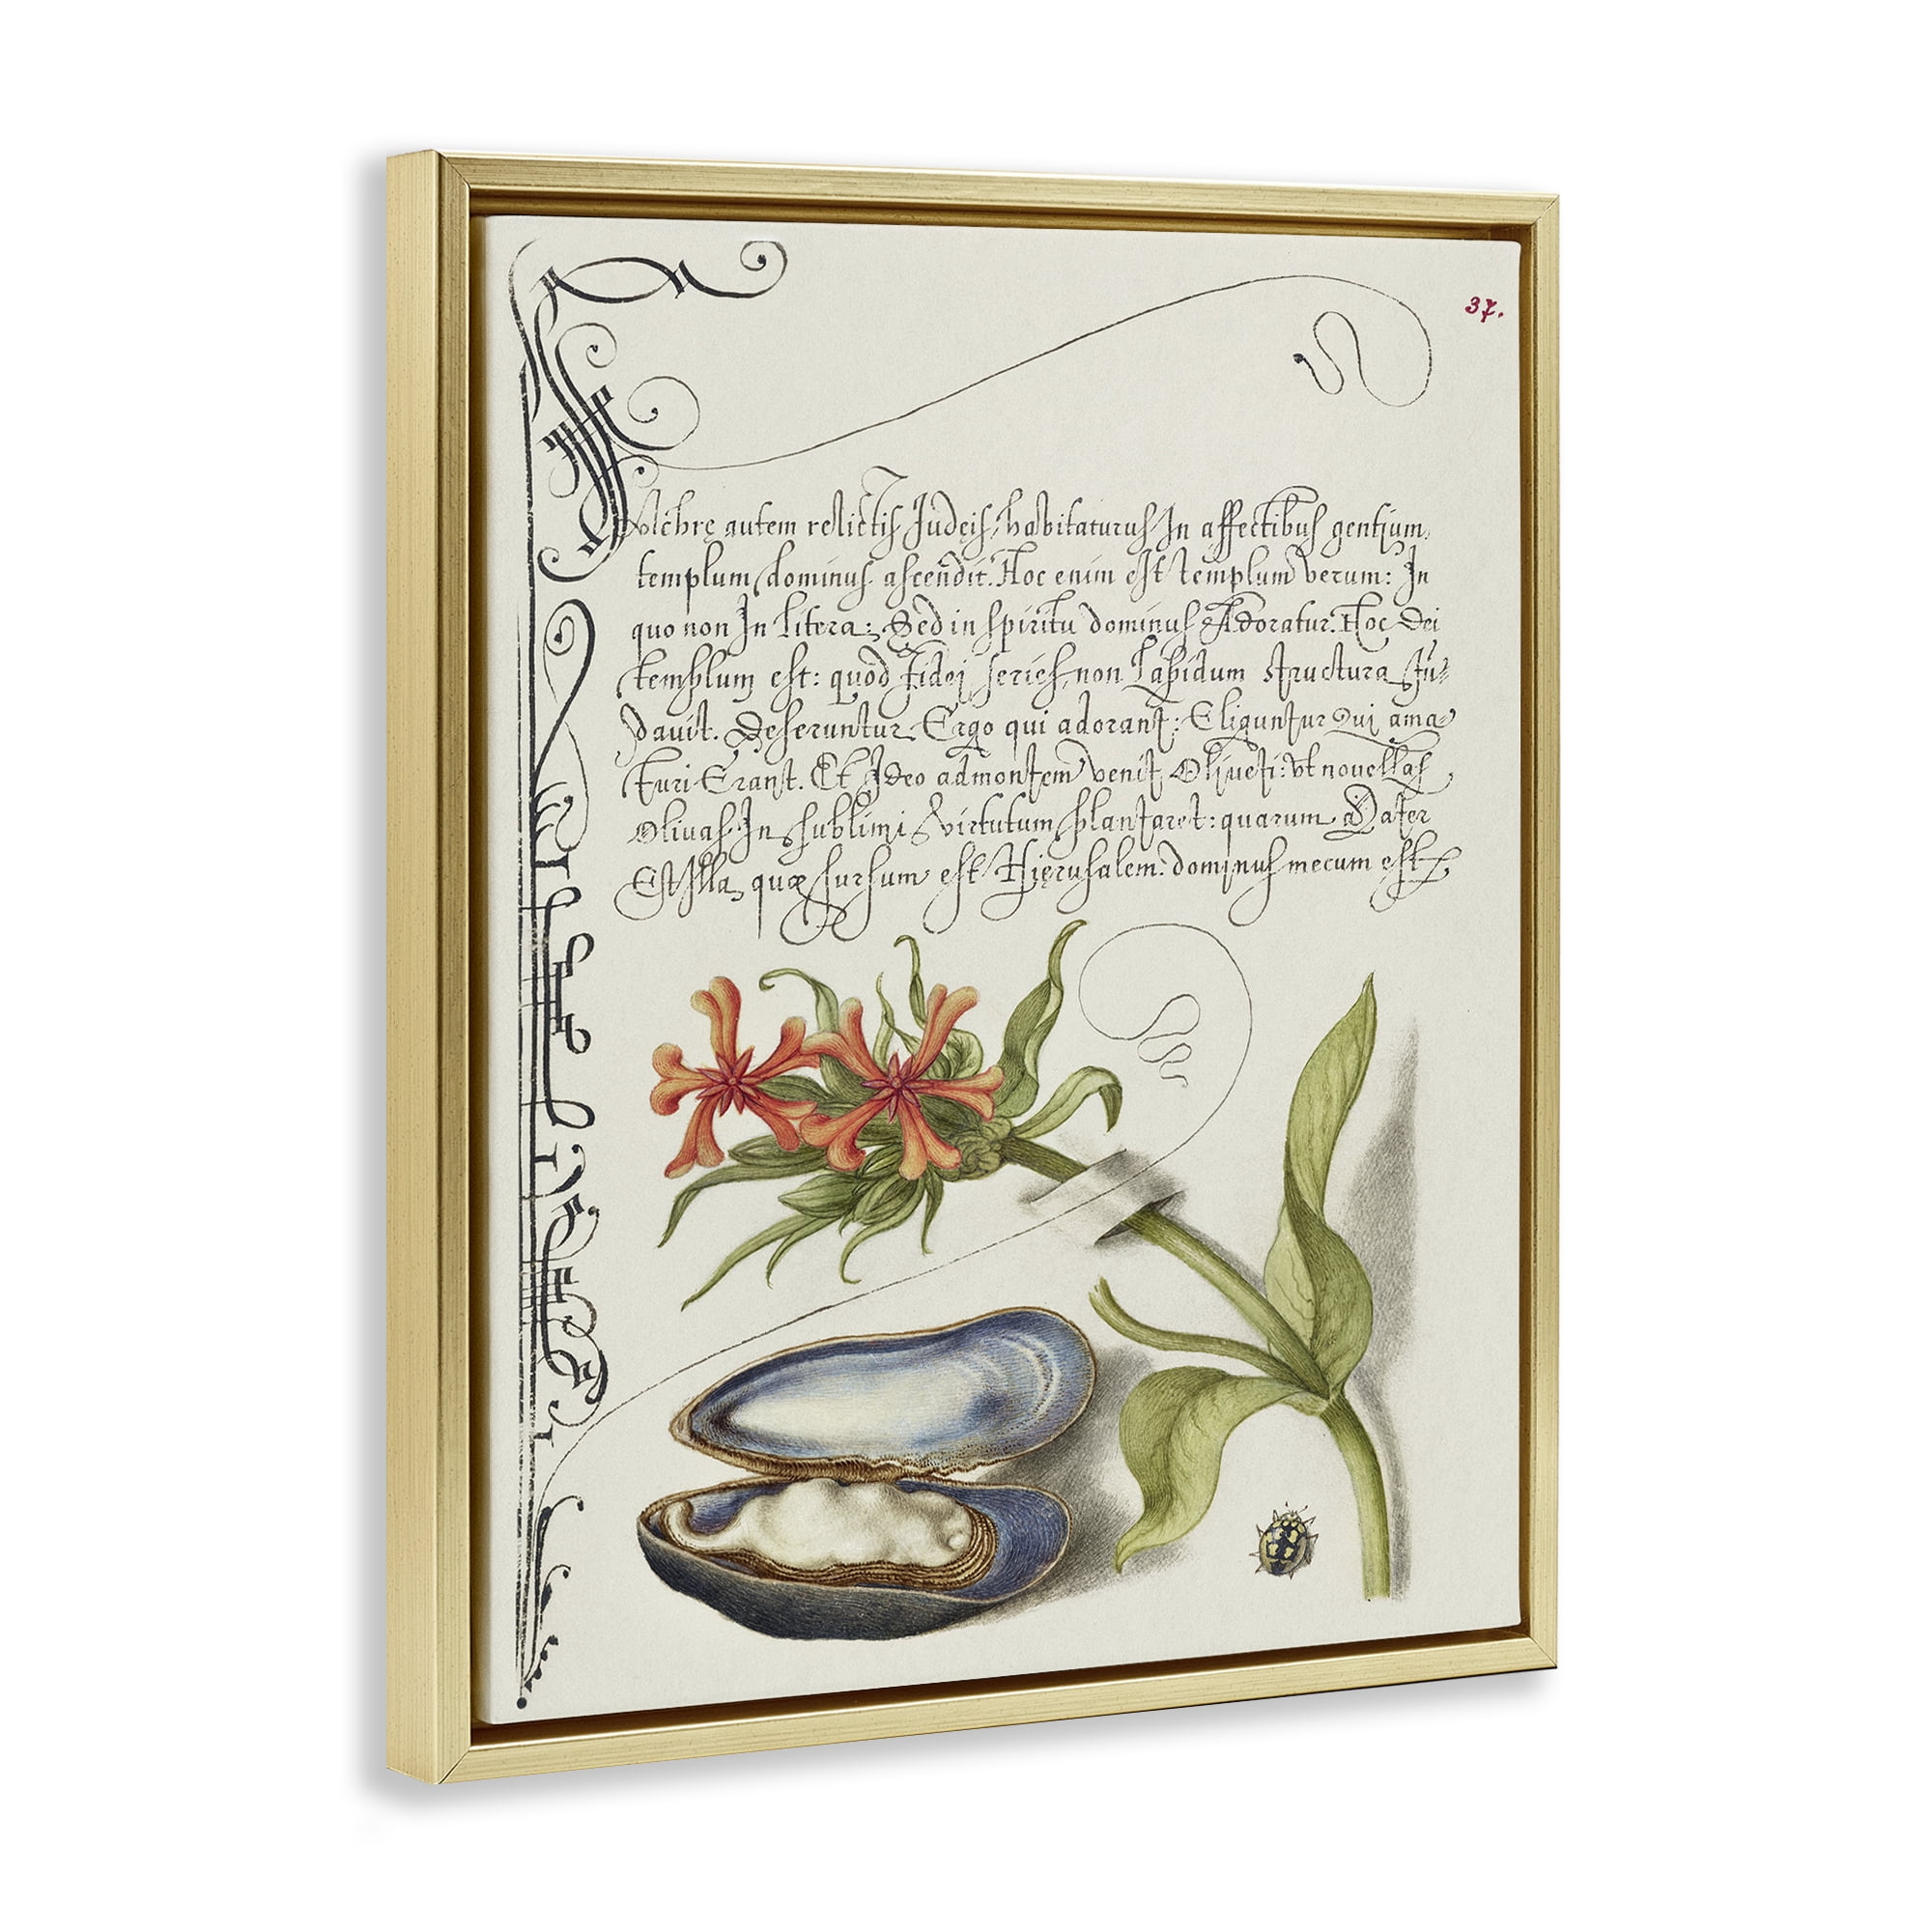 37.
Pulchrę autem relictis Judęis, habitaturus In affectibus gentium,
templum dominus ascendit. Hoc enim est templum verum: In
quo non In litera: Sed in spiritu dominus Adoratur. Hoc Dei
templum est: quod fidei series, non lapidum structura fun⸗
dauit. Deseruntur Ergo qui adorant: Eliguntur Qui ama⸗
turi Erant. Et Ideo ad montem venit Oliueti: vt nouellas
Oliuas In sublimi virtutum plantaret: quarum Mater
Est Illa, quæ sursum est Hierusalem. dominus mecum est